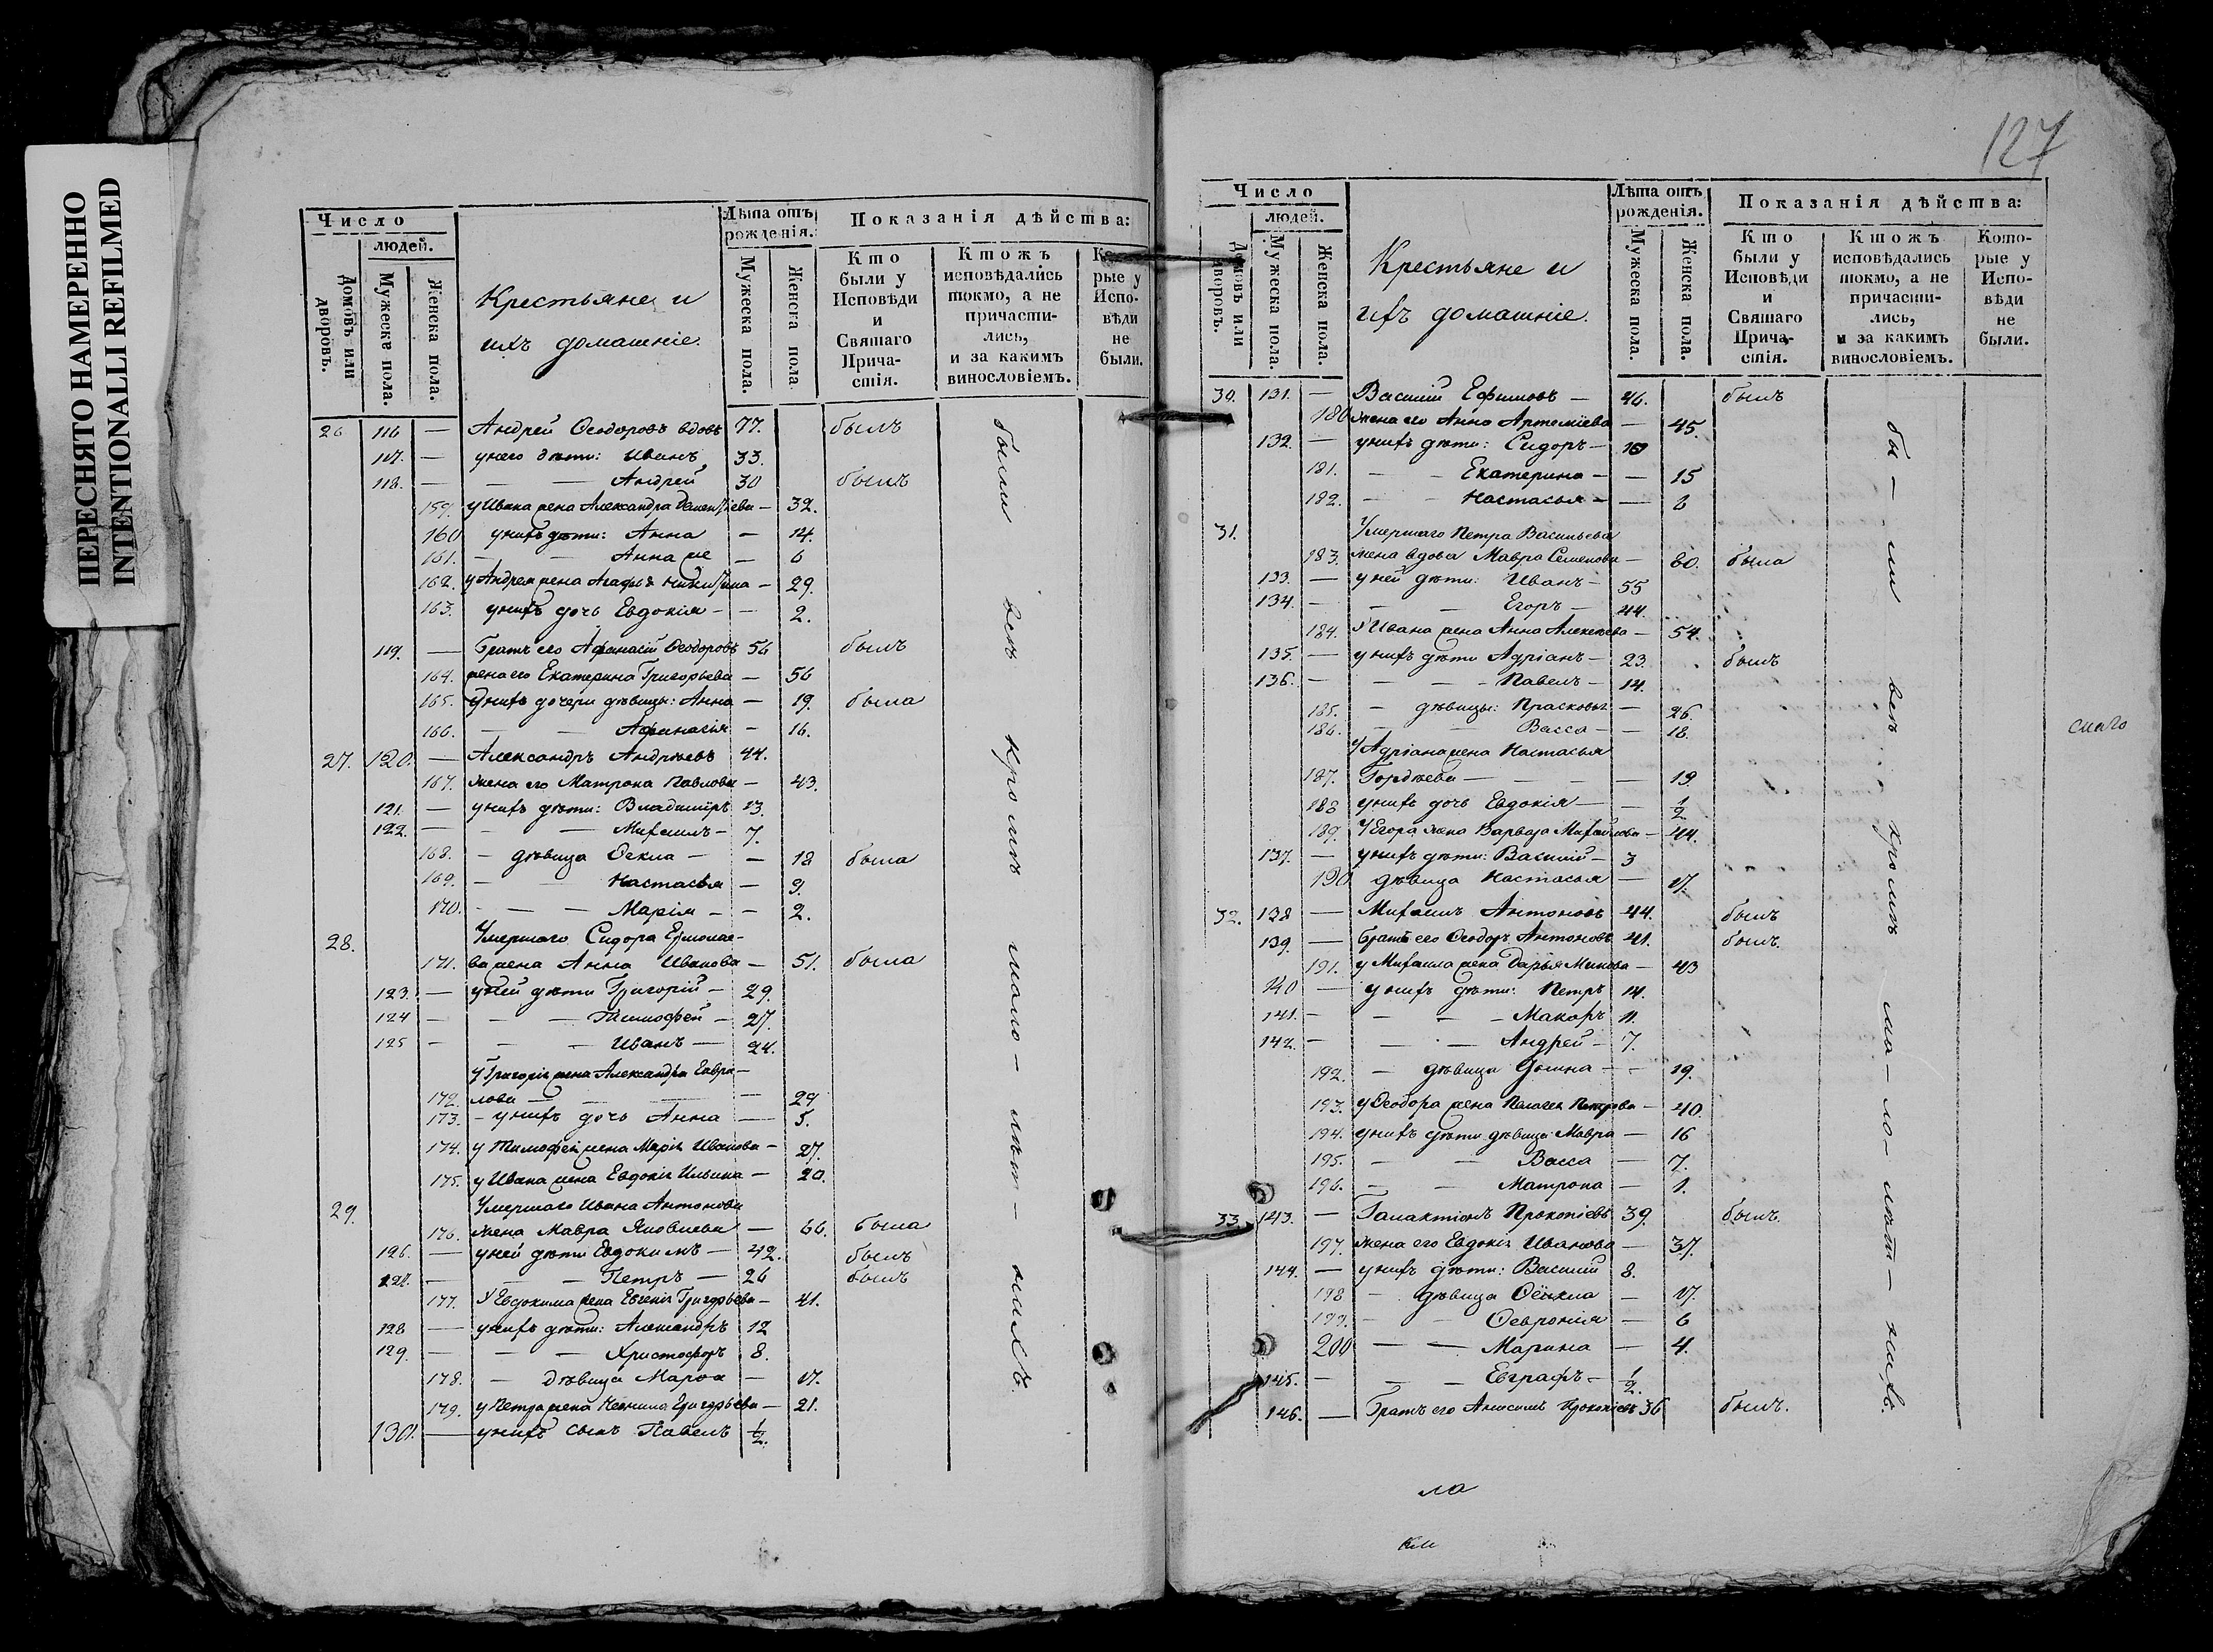 ПЕРЕСНЯТО НАМЕРЕННО
INTENTIONALLI REFILMED
Число
людей.
Домовъ или дворовъ.
Мужеска пола.
Женска пола.
Крестьяне и
ихъ домашніе.
Лѣта отъ рожденія.
Мужеска пола.
Женска пола.
Показанія дѣйства:
Кто были у Исповѣди и Святаго Причастія.
Ктожъ исповѣдались токмо, а не причастились, и за какимъ винословіемъ.
Которые у Исповѣди не были.
26 116 — Андрей Ѳеодоровъ вдовъ 77. былъ
117. — у него дѣти: Иванъ 33.
118. — — — Андрей 30 былъ
159. у Ивана жена Александра — 32.
160 у нихъ дѣти: Анна — 14.
161. — — Анна же — 6
162. у Андрея жена Агафья Никитина — 29.
163. у нихъ дочь Евдокія — — 2.
119. — Братъ его Афанасій Ѳеодоровъ 56 былъ
164. жена его Екатерина Григорьева — 56
165. у нихъ дочери дѣвицы: Анна — 19. была
166. — — Афанасія — 16.
27. 120. — Александръ Андреевъ 44.
167. жена его Матрона Павлова — 43.
121. — у нихъ дѣти: Владимиръ 13.
122. — — — Михаилъ — 7.
168. — дѣвица Ѳекла — — 18 была
169. — — Настасья — 9.
170. — — Марія — — 2.
28. Умершаго Сидора Ермолае-
171. ва жена Анна Иванова — 51. была
123. — у ней дѣти Григорій — 29.
124 — — — Тимофей — 27.
125 — — — Иванъ — 24.
у Григорія жена Александра Гаври-
172. лова — — — 29
173. — у нихъ дочь Анна — 5.
174. у Тимофея жена Марія Иванова — 27.
175. у Ивана жена Евдокія Ильина — 20.
29. Умершаго Ивана Антонова
176. жена Мавра Яковлева — 66. была
126. — у ней дѣти Евдокимъ — 42. былъ
127. — — — Петръ — 26 былъ
177. У Евдокима жена Евгенія Григорьева — 41.
128 — у нихъ дѣти: Александръ 12
129. — — — Христофоръ 8.
178. — Дѣвица Марѳа — 17.
179. у Петра жена Григорьева — 21.
130. — у нихъ сынъ Павелъ 1/2.
были всѣ кромѣ мало-лѣт-нихъ.
127
Число
людей.
Домовъ или дворовъ.
Мужеска пола.
Женска пола.
Крестьяне и
ихъ домашніе.
Лѣта отъ рожденія.
Мужеска пола.
Женска пола.
Показанія дѣйства:
Кто были у Исповѣди и Святаго Причастія.
Ктожъ исповѣдались токмо, а не причастились, и за какимъ винословіемъ.
Которые у Исповѣди не были.
30. 131. — Василій Ефимовъ — 46. былъ
180 жена его Анна Артеміева — 45.
132. — у нихъ дѣти: Сидоръ — 10
181. — — Екатерина — — 15
182. — — Настасья — — 6
31. Умершаго Петра Васильева
183. жена вдова Мавра Семенова — 80. была
133. — у ней дѣти: Иванъ — 55
134. — — — Егоръ — 44.
184. У Ивана жена Анна Алексеева — 54.
135. — у нихъ дѣти Адріанъ — 23. былъ
136. — — — Павелъ — 14.
185. — дѣвицы: Прасковья — 26.
186. — — Васса — — 18.
У Адріана жена Настасья
187. Гордѣева — — — — 19
188 у нихъ дочь Евдокія — — 1/2
189. У Егора жена Варвара Михайлова — 44.
137. — у нихъ дѣти: Василій — 3
190 дѣвица Настасья — 17.
32. 138 — Михаилъ Антоновъ 44. былъ
139. — братъ его Ѳеодоръ Антоновъ 41. былъ.
191. у Михаила жена Дарья — 43
140 — у нихъ дѣти: Петръ 14.
141. — — — Макаръ 11.
142. — — — Андрей — 7.
192. — дѣвица — — 19.
193. у Ѳеодора жена Пелагея Петрова — 40.
194. у нихъ дѣти дѣвицы Мавра — 16
195. — — Васса — 7.
196. — — Матрона — 1.
33. 143. — Галактіонъ Прокопіевъ 39. былъ.
197. жена его Евдокія Иванова — 37.
144. — у нихъ дѣти: Василий 8.
198 — дѣвица Ѳекла — 17.
199. — — Ѳевронія — 6
200 — — Марина — 4.
145. — — — Евграфъ — 1/2.
146. — Братъ его Анисимъ Прокопіевъ 36 былъ.
бы-ли всѣ кромѣ ма-ло-лѣт-нихъ.
ла